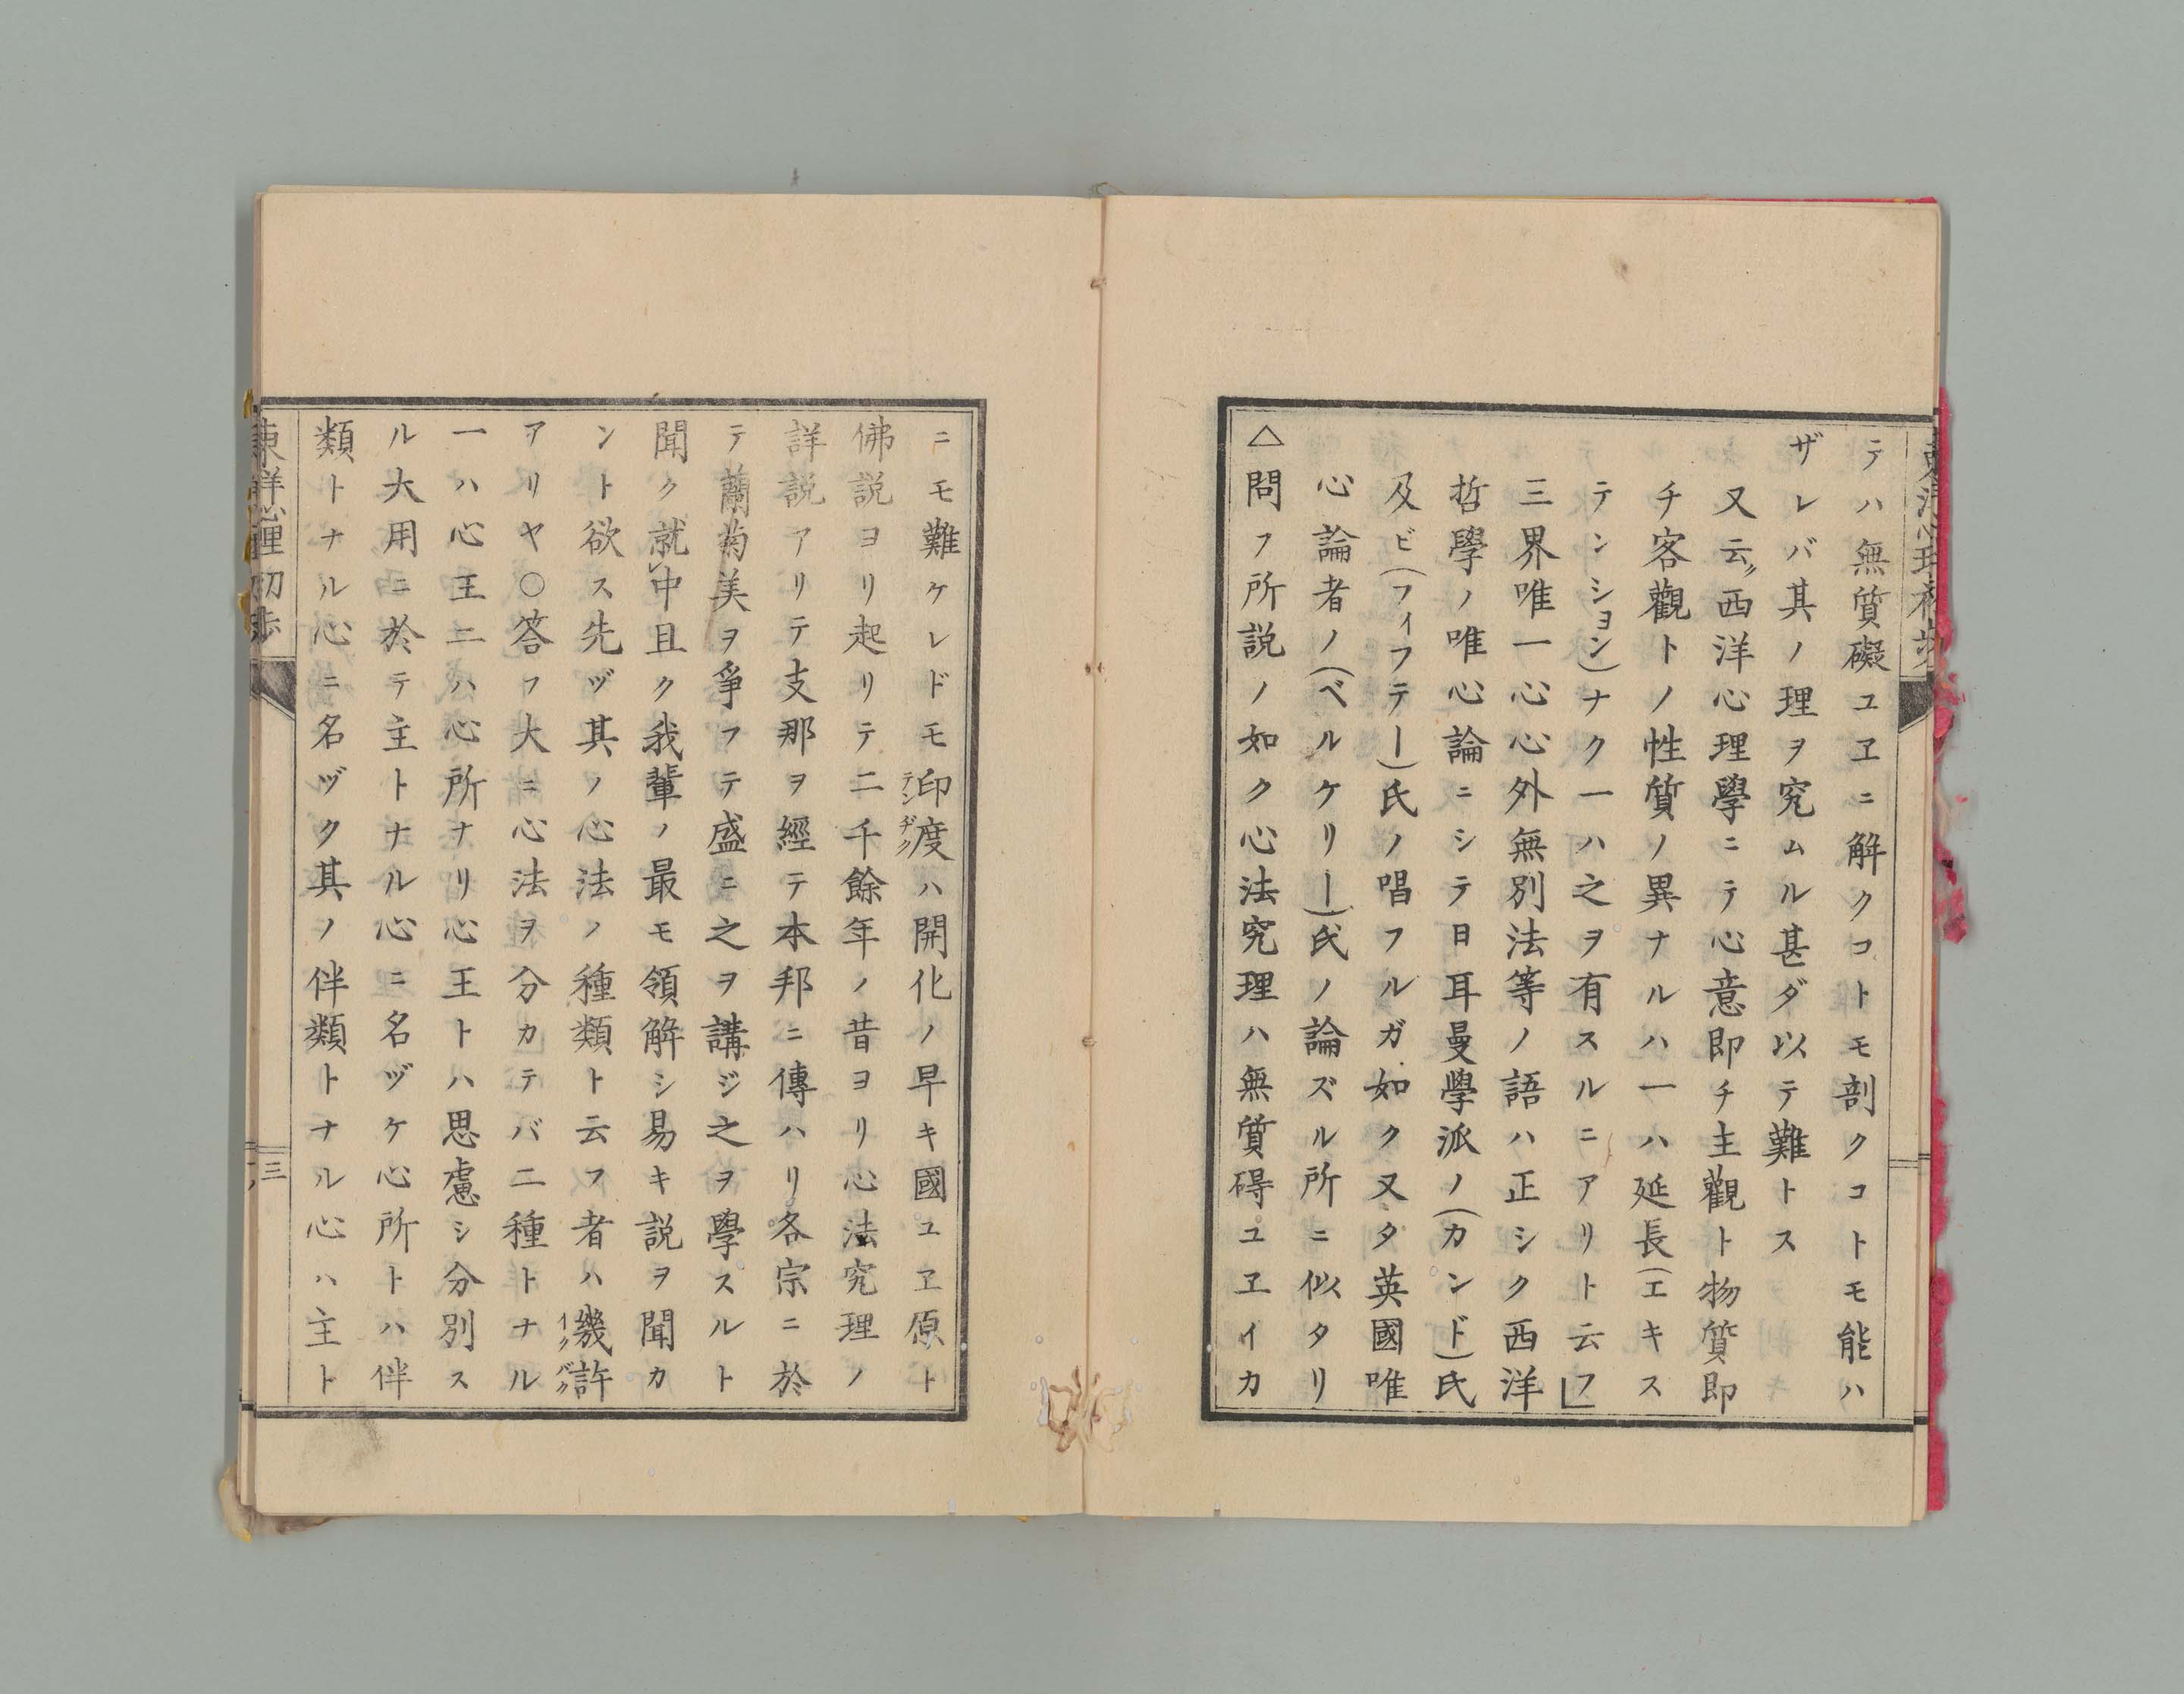 東洋心理初歩
テハ無質礙ユヱニ解クコトモ剖クコトモ能ハ
ザレバ其ノ理ヲ究ムル甚ダ以テ難トス
又云〃西洋心理學ニテ心意即チ主觀ト物質即
チ客觀トノ性質ノ異ナルハ一ハ延長(エキス
テンション)ナク一ハ之ヲ有スルニアリト云フ」
三界唯一心心外無別法等ノ語ハ正シク西洋
哲學ノ唯心論ニシテ日耳曼學派ノ(カンド)氏
及ビ(フィフテー)氏ノ唱フルガ如ク又タ英國唯
心論者ノ(ベルケリー)氏ノ論ズル所ニ似タリ
△問フ所説ノ如ク心法究理ハ無質碍ユヱイカ
ニモ難ケレドモ印度ハ開化ノ早キ國ユヱ原ト
テンヂク
佛説ヨリ起リテ二千餘年ノ昔ヨリ心法究理ノ
詳説アリテ支那ヲ經テ本邦ニ傳ハリ各宗ニ於
テ蘭菊美ヲ爭フテ盛ニ之ヲ講ジ之ヲ學スルト
聞ク就レ中且ク我輩ノ最モ領解シ易キ説ヲ聞カ
ント欲ス先ヅ其ノ心法ノ種類ト云フ者ハ幾許
イクバク
アリヤ○答フ大ニ心法ヲ分カテバ二種トナル
一ハ心王二ハ心所ナリ心王トハ思慮シ分別ス
ル大用ニ於テ主トナル心ニ名ヅケ心所トハ伴
類トナル心ニ名ヅク其ノ伴類トナル心ハ主ト
東洋心理初歩
三